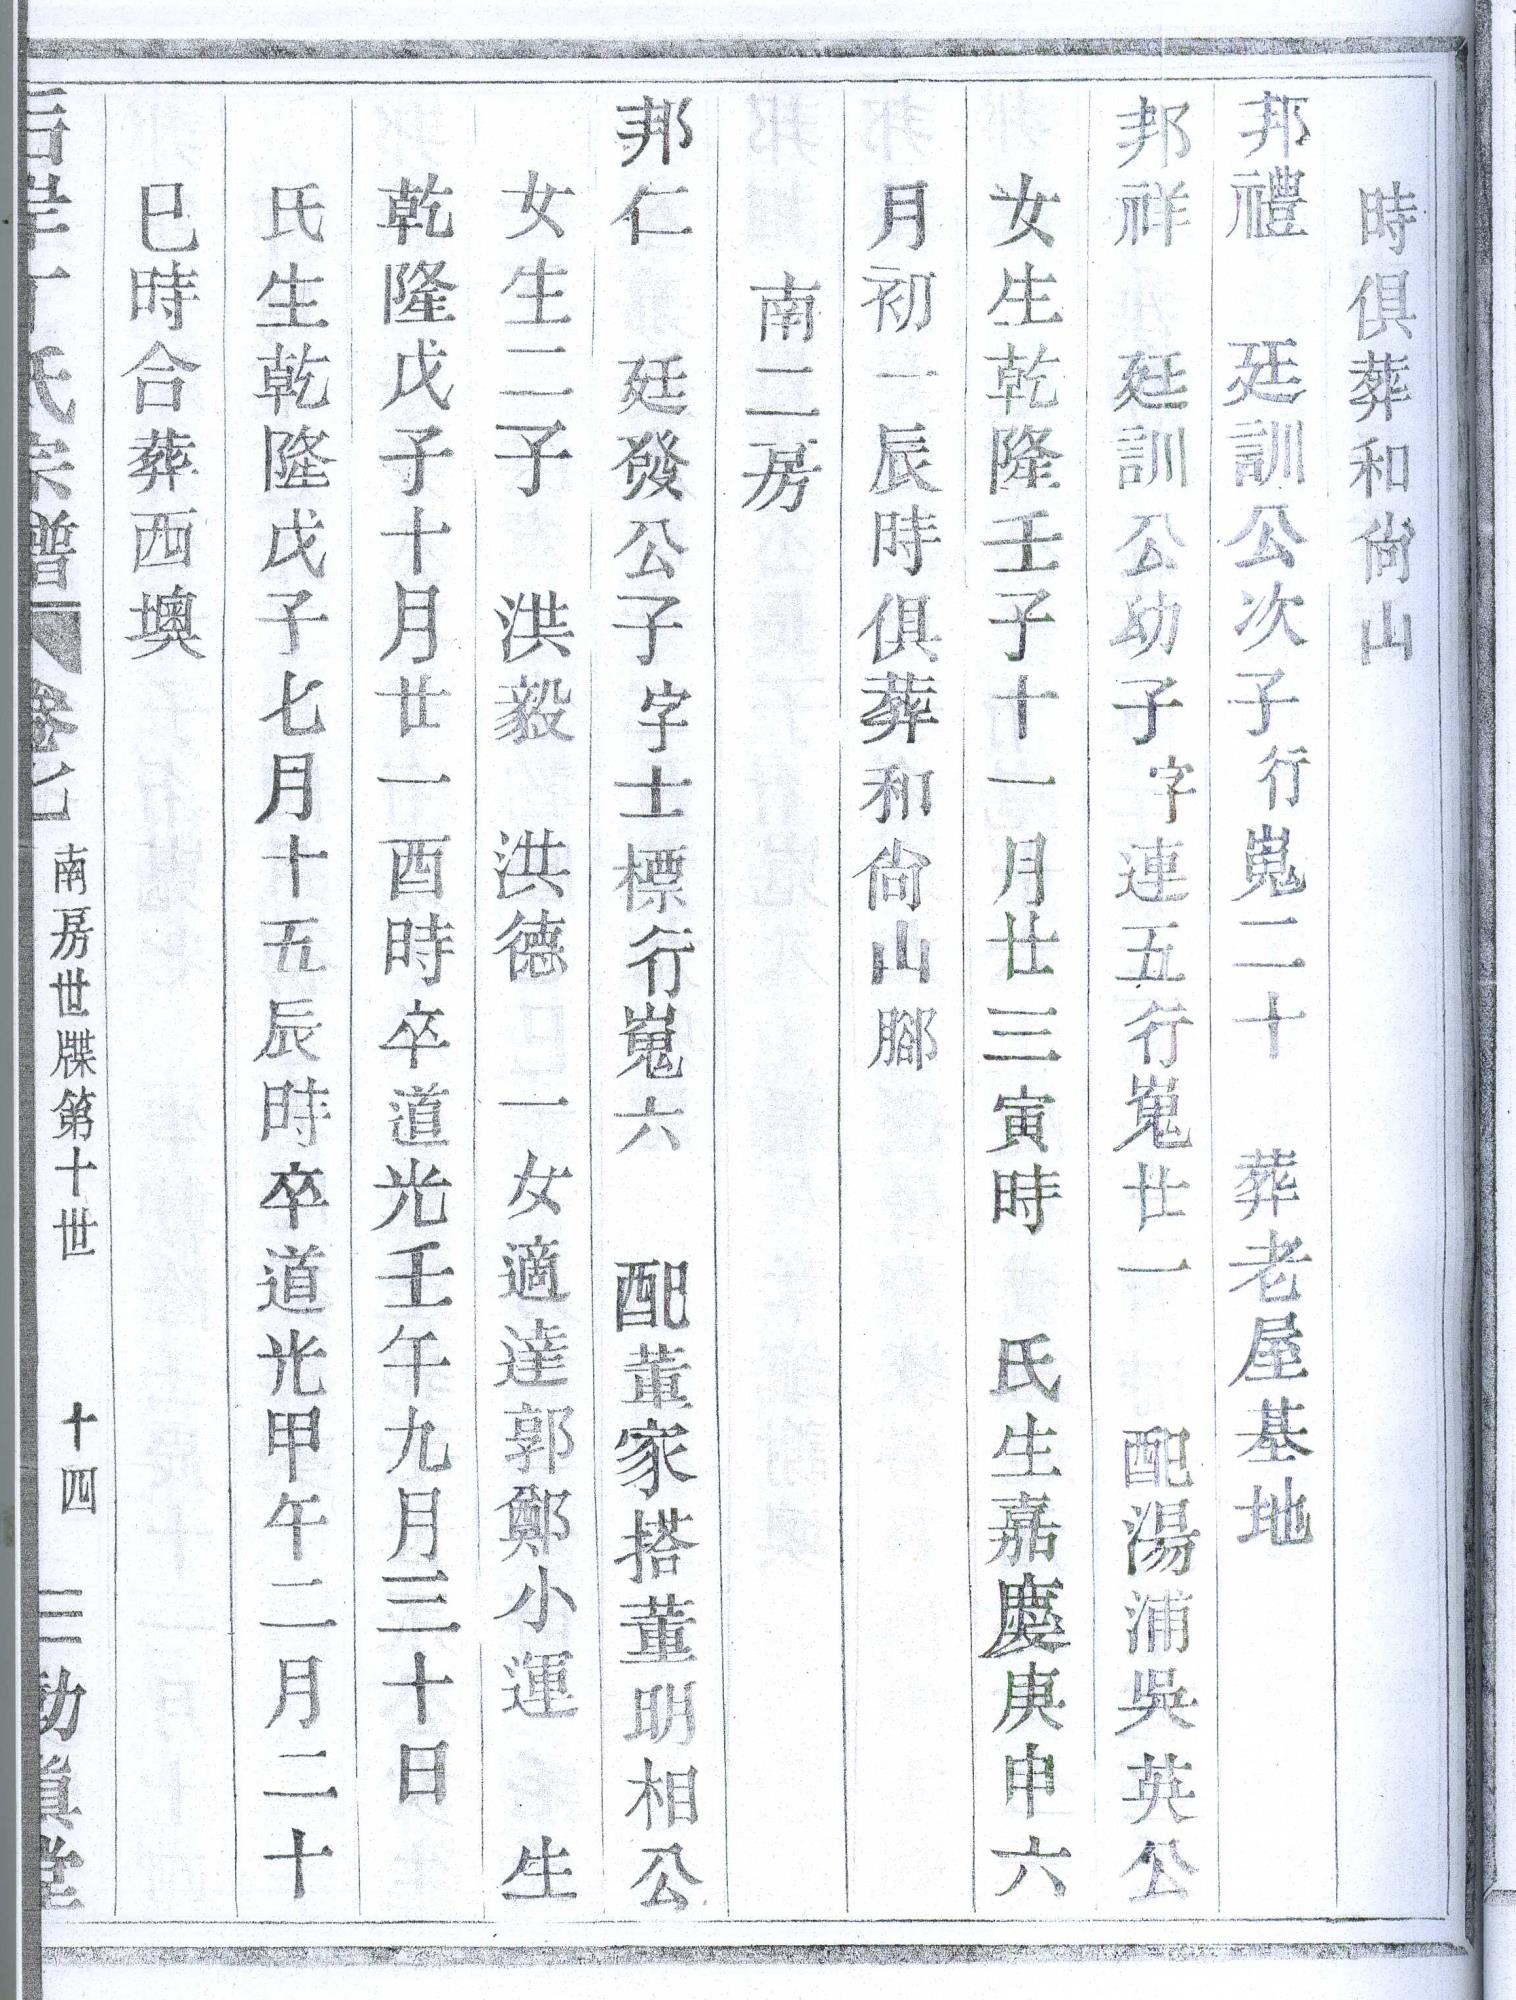 時俱葬和尙山
邦禮　廷訓公次子行嵬二十　葬老屋基地
邦祥　廷訓公幼子字連五行嵬廿一　配湯浦吳英公
女生乾隆壬子十一月廿三寅時　氏生嘉慶庚申六
月初一辰時俱葬和尙山腳
南二房
邦仁　廷發公子字士標行嵬六　配董家搭董明相公
女生二子　洪毅　洪德　一女適達郭鄭小運　生
乾隆戊子十月廿一酉時卒道光壬午九月三十日
氏生乾隆戊子七月十五辰時卒道光甲午二月二十
巳時合葬西墺
氏宗譜　卷七　南房世牒第十世　十四